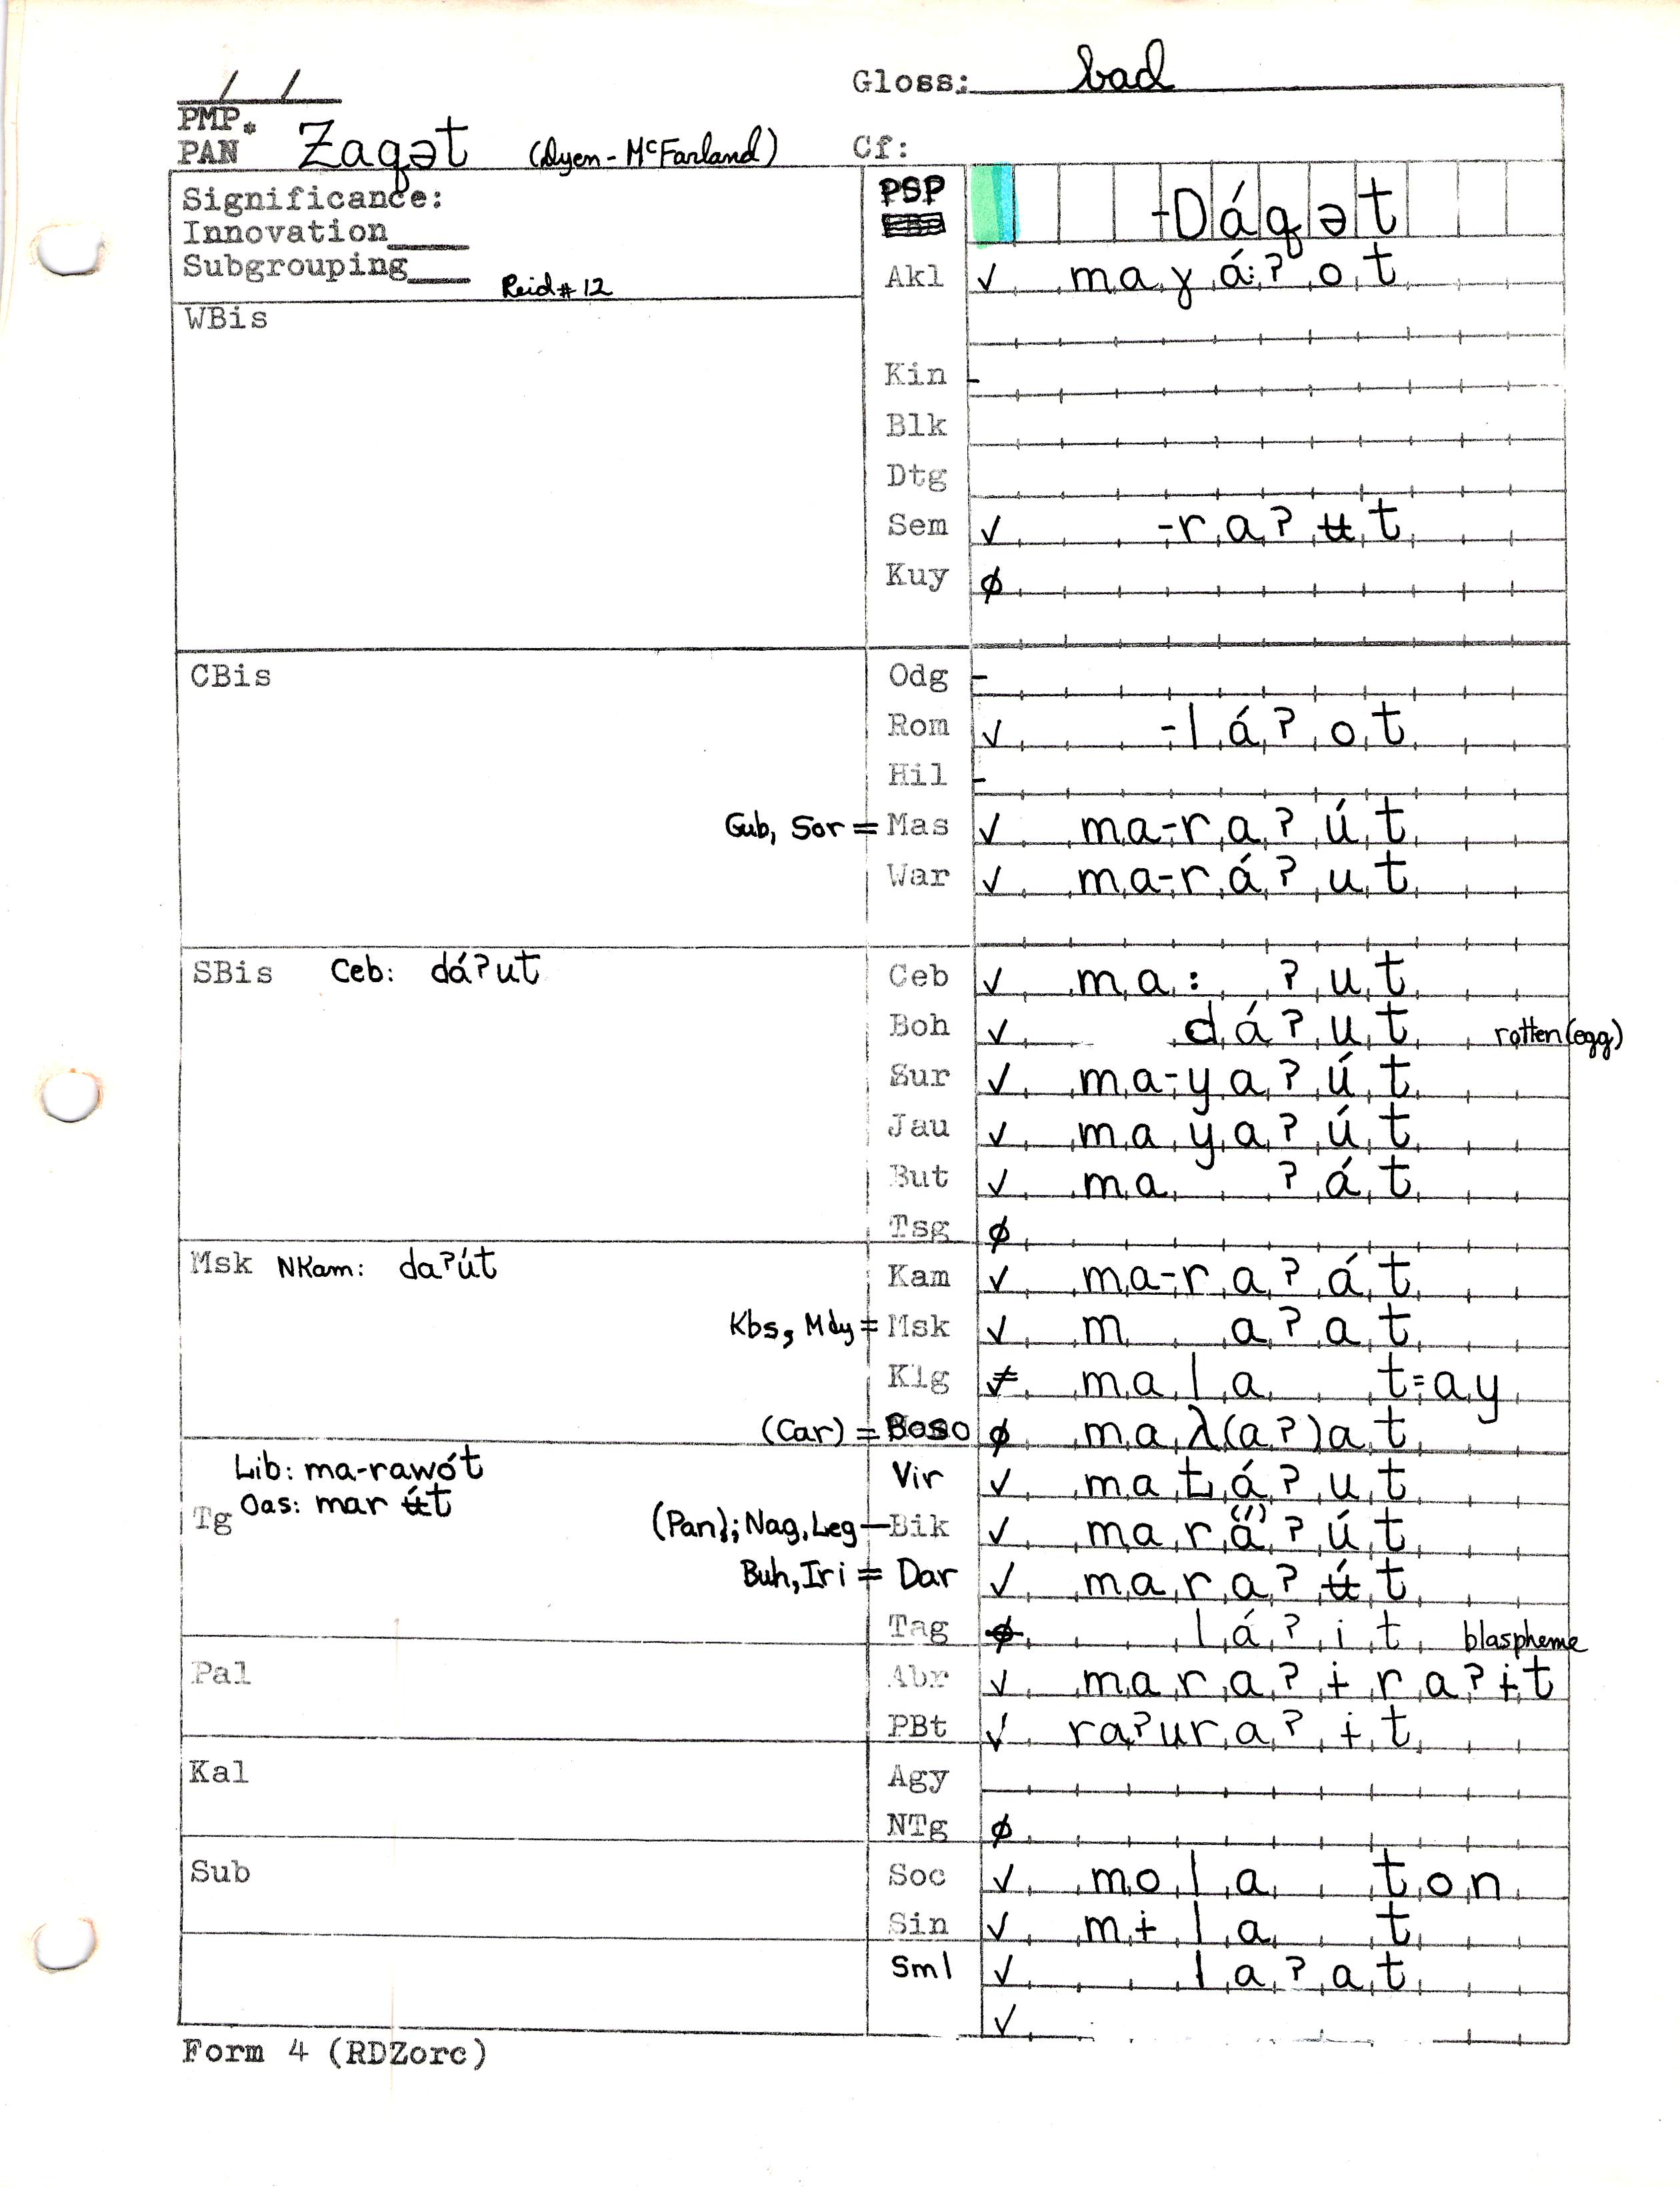 Gloss: bad
PMP.
PAN Zaqət (Dyen-McFarland) Cf:
Significance:
Innovation
Subgrouping Reid #12
PSP -Dáqət
Akl ✓ mayá:ʔot
WBis
Kin -
Blk
Dtg
Sem ✓ -raʔʉt
Kuy ø
CBis
Odg -
Rom ✓ -láʔot
Hil -
Gub, Sor = Mas ✓ ma-raʔút
War ✓ ma-ráʔut
SBis Ceb: dáʔut
Ceb ✓ ma: ʔut
Boh ✓ dáʔut rotten (egg)
Sur ✓ ma-yaʔút
Jau ✓ mayaʔút
But ✓ ma ʔát
Tsg ø
Msk NKam: daʔút
Kam ✓ ma-raʔát
Kbs, Mdy = Msk ✓ m aʔat
Klg ≠ mala t=ay
(Car) = Boso ø maλ(aʔ)at
Lib: ma-rawót
Oas: marʉ́t
Tg
Vir ✓ matáʔut
(Pan); Nag, Leg - Bik ✓ mara(́)ʔút
Buh, Iri = Dar ✓ maraʔʉ́t
Tag ø láʔit blaspheme
Pal
Abr ✓ maraʔɨraʔɨt
PBt ✓ raʔuraʔɨt
Kal
Agy
NTg ø
Sub
Soc ✓ mola ton
Sin ✓ mɨla t
Sml ✓ laʔat
✓
Form 4 (RDZorc)